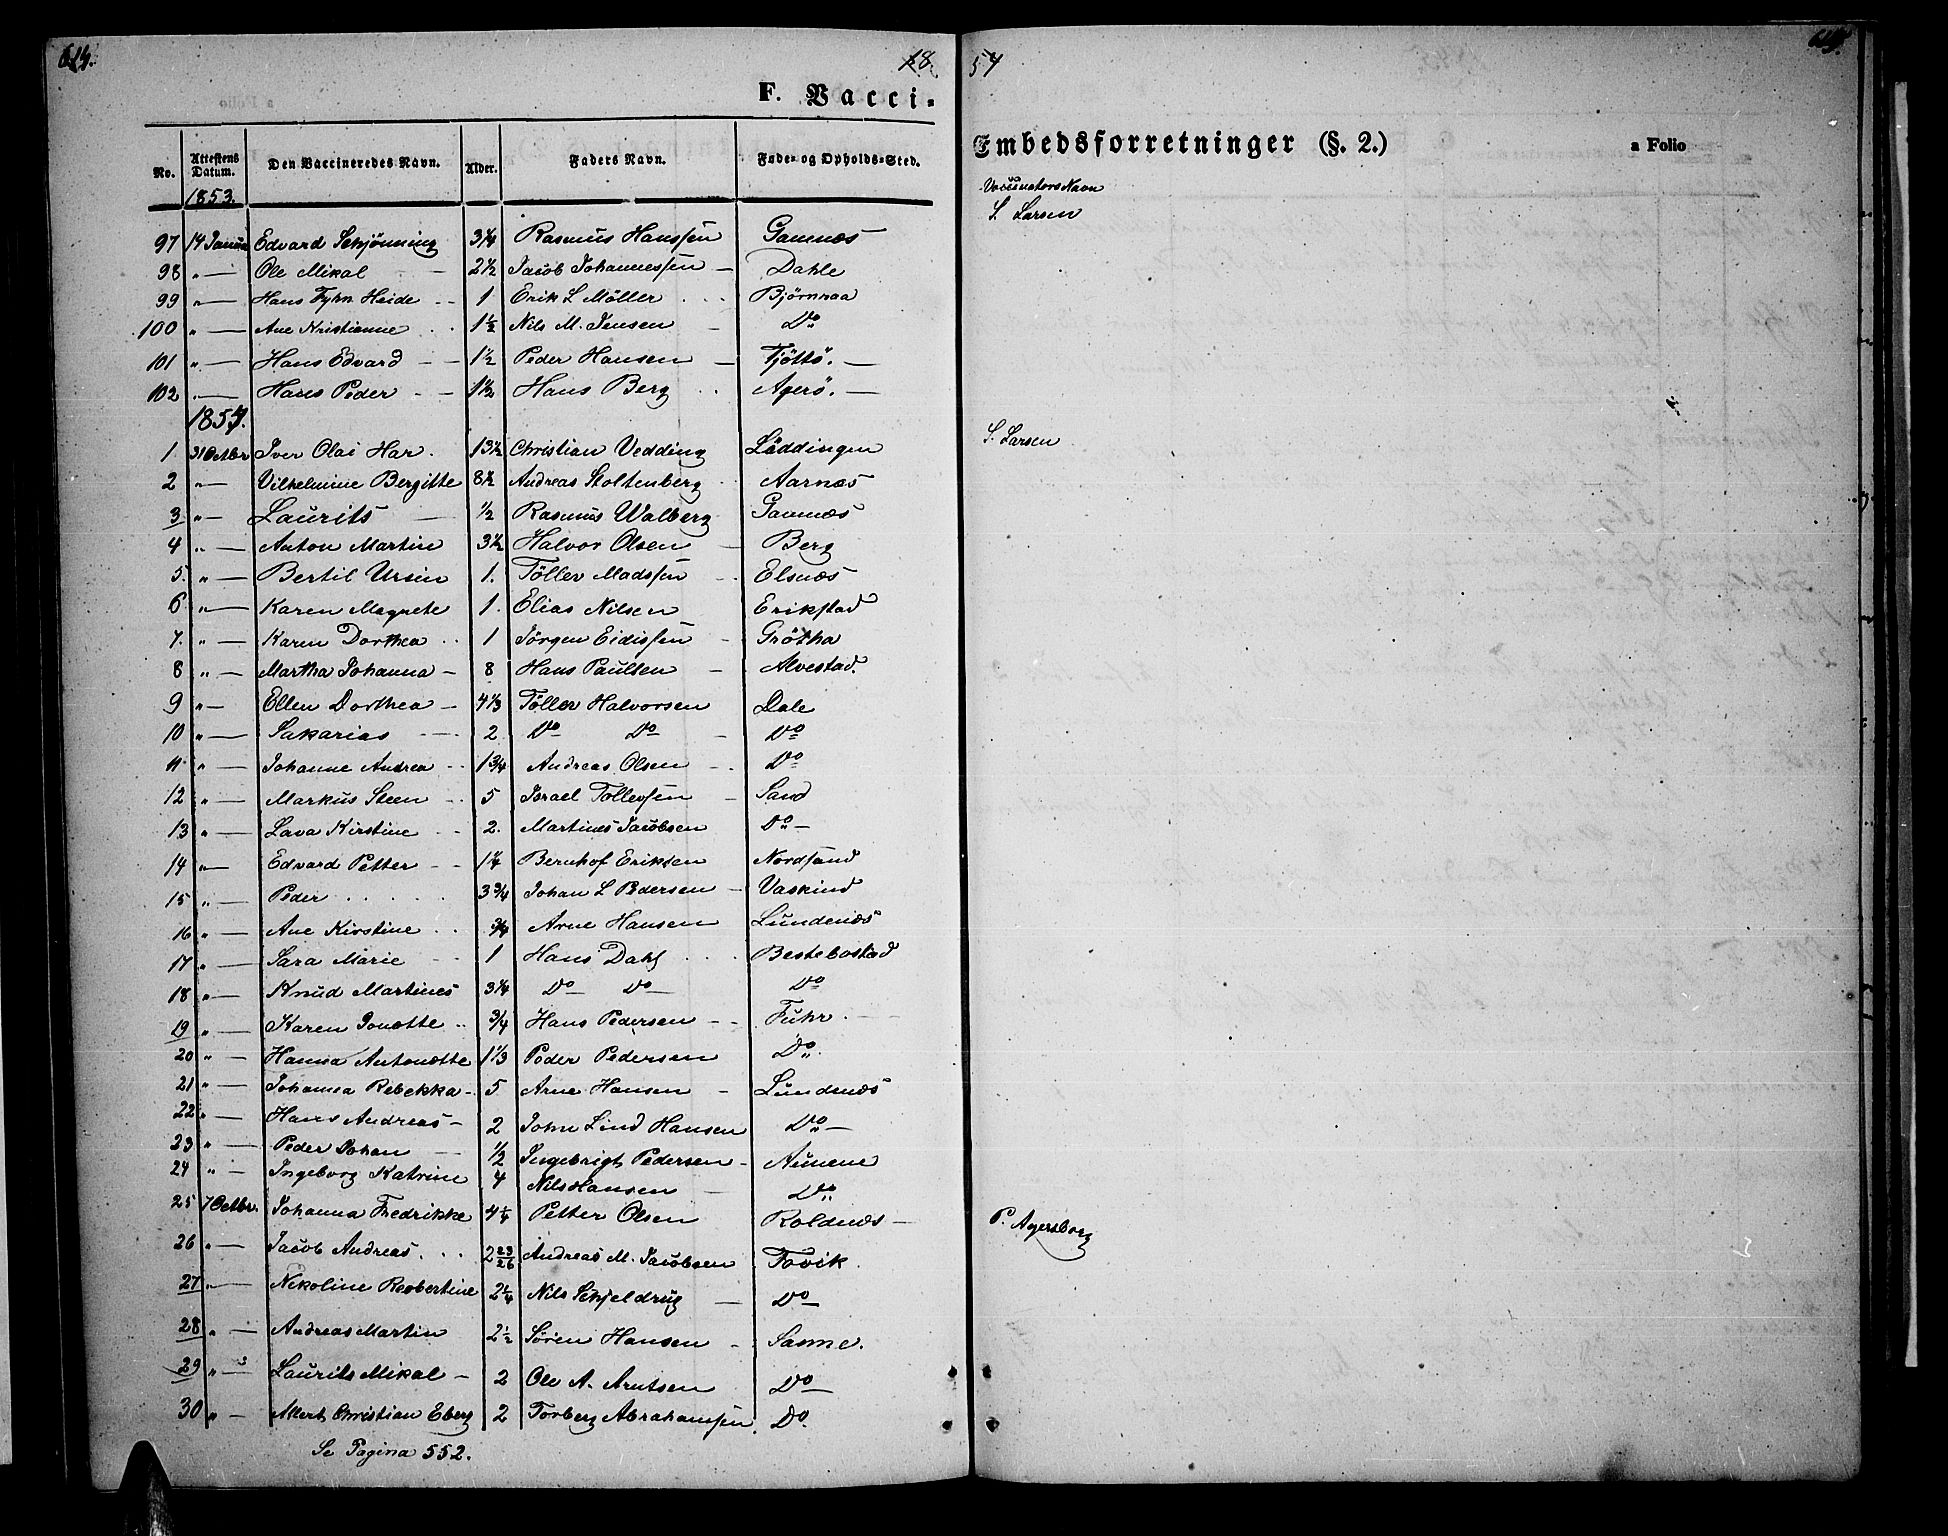 614.
18
F. Vacci-
No. Attestens Datum. Den Vaccineredes Navn. Alder. Faders Navn. Føde- og Opholds-Sted.
1853.
97 14 Janua Edvard Schjönning 3 1/4 Rasmus Hanssen Gamnæs
98 " — Ole Mikal — 2 1/2 Jacob Johannessen — Dahle
99 " — Hans Tyhn Heide - - 1 Erik L Möller . . . Bjørnraa
100 " — Ane Kristianne . . 1 1/2 Nils M. Jensen — Do
101 " — Hans Edvard — — 1 1/2 Peder Hansen — Tjöttö. —
102 " — Hans Peder - — 1 1/2 Hans Berg . . Agerö. —
1854.
1 31 Octbr Iver Olai Har. 13 1/2 Christian Vedding Löddingen
2 " — Vilhelmine Bergitte 8 1/2 Andreas Stoltenberg . Aarnæs
3 " — Laurits — 1/2 Rasmus Walberg Gamnæs
4 " — Anton Martin 3 1/2 Halvor Olsen — Berg
5. " — Bertil Ursin 1. Töller Madssen - . Elsnæs
6 " — Karen Magnete 1. Elias Nilsen Erikstad
7. " — Karen Dorthea . . 1 Jörgen Eidissen - Grötha
8 " — Martha Johanna - 8 Hans Paulsen - Alvestad.
9 " — Ellen Dorthea — 4 1/3 Töller Halvorsen Dale
10 " — Sakarias — - — 2 Do Do - Do
11 " — Johanne Andrea - - 1 3/4 Andreas Olsen - - Do
12 " — Markus Steen - . 5 Israel Tollefsen — Sand
13 " — Lava Kirstine - - 2. Martines Jacobsen Do —
14 " — Edvard Petter — - 1 1/4 Bernhof Eriksen Nordsand
15 " — Peder . . . . . 3 3/4 Johan L Pedersen — Vaskind
16 " — Ane Kirstine . . 3/4 Arne Hansen — Lundenæs
17 " — Sara Marie - - 1 Hans Dahl . . . Bestebostad
18 " — Knud Martines 3 1/4 Do Do — Do
19 " — Karen Jonette . . 3/4 Hans Pedersen - - Fuhr. - —
20 " — Hanna Antonette 1 1/3 Peder Pedersen — Do.
21 " — Johanna Rebekka - 5 Arne Hansen — Lundenæs
22 " — Hans Andreas - 2 John Lind Hansen Do —
23 " — Peder Johan — 1/2 Ingebrigt Pedersen - Aunene
24 " — Ingeborg Katrine 4 Nils Hansen — Do
25 7 Octbr. Johanna Fredrikke 4 1/4 Petter Olsen Roldnæs —
26 " — Jacob Andreas . . . 2 23/26 Andreas M. Jacobsen Tovik.
27 " — Nikoline Robertine 2 1/4 Nils Schjeldrug — Do —
28 " — Andreas Martin 2 1/2 Sören Hansen - Sanne.
29 " — Laurits Mikal - 2 Ole A. Arntsen Do —
30 " — Allert Christian Eberg 2 Torberg Abrahamsen. Do.
Se Pagina 552.
54
Embedsforretninger (§. 2.)
a Folio
Vaccinators Navn
S. Larsen
S. Larsen
P. Agersborg